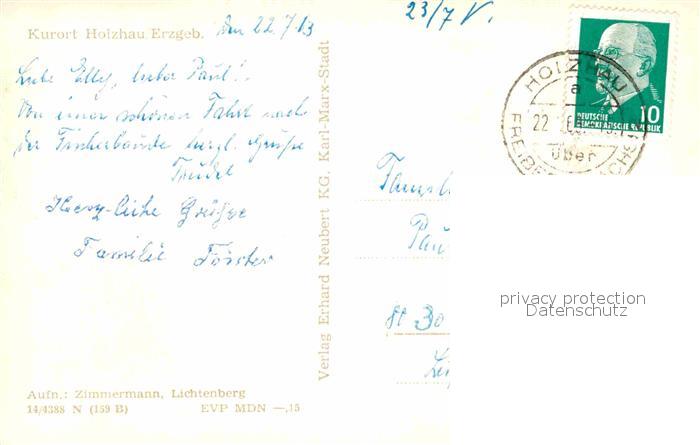 Kurort Holzhau Erzgeb. Den 22.7.
23/7 V.
Liebe Elly, lieber Paul!
Von einer schönen Fahrt nach
der Fischerbaude herzl. Grüße
Trudel
Herz-liche Grüße
Familie Förster
Verlag Erhard Neubert KG, Karl-Marx-Stadt
Aufn.: Zimmermann, Lichtenberg
14/4388 N (159 B) EVP MDN —,15
HOLZHAU
a
22
über
10
DEUTSCHE
DEMOKRATISCHE REPUBLIK
Pau
30
privacy protection
Datenschutz